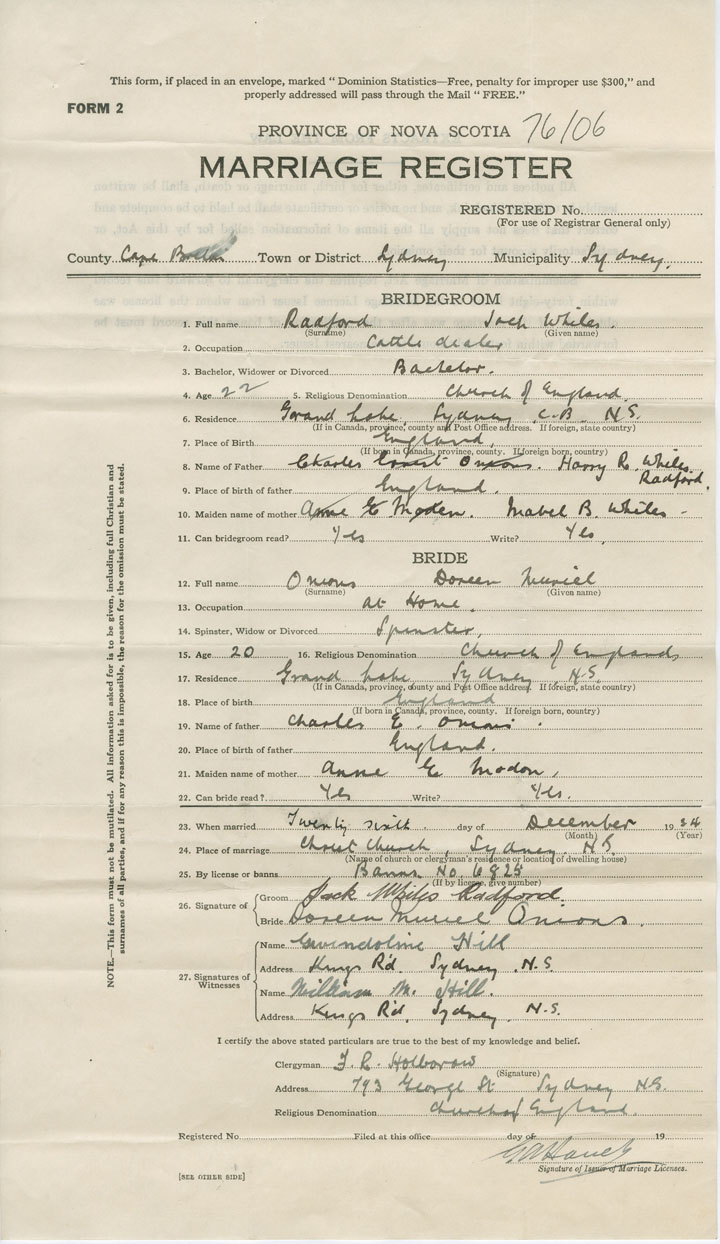 This form, if placed in an envelope, marked “ Dominion Statistics—Free, penalty for improper use $300,” and
properly addressed will pass through the Mail “ FREE.”
FORM 2
PROVINCE OF NOVA SCOTIA 76/06
MARRIAGE REGISTER
REGISTERED No.
(For use of Registrar General only)
County Cape Breton Town or District Sydney Municipality Sydney.
BRIDEGROOM
1. Full name Radford Jack Whiles.
(Surname) (Given name)
2. Occupation Cattle dealer
3. Bachelor, Widower or Divorced Bachelor.
4. Age 22 5. Religious Denomination Church of England.
6. Residence Grand Lake, Sydney, C.B. N.S.
(If in Canada, province, county and Post Office address. If foreign, state country)
7. Place of Birth England,
(If born in Canada, province, county. If foreign born, country)
8. Name of Father Charles Ernest Onions. Harry R. Whiles
Radford.
9. Place of birth of father England.
10. Maiden name of mother Anne E Moden. Mabel B. Whiles -
11. Can bridegroom read? Yes Write? Yes,
BRIDE
12. Full name Onions Doreen Muriel
(Surname) (Given name)
13. Occupation at Home.
14. Spinster, Widow or Divorced Spinster,
15. Age 20 16. Religious Denomination Church of England
17. Residence Grand Lake Sydney N.S.
(If in Canada, province, county and Post Office address. If foreign, state country)
18. Place of birth England
(If born in Canada, province, county. If foreign born, country)
19. Name of father Charles E. Onions.
20. Place of birth of father England.
21. Maiden name of mother Anne E Modon,
22. Can bride read? Yes Write? Yes.
23. When married Twenty sixth day of December 1934
(Month) (Year)
24. Place of marriage Christ Church, Sydney N.S.
(Name of church or clergyman's residence or location of dwelling house)
25. By license or banns Banns No. 6825
(If by license, give number)
26. Signature of Groom Jack Whiles Radford.
Bride Doreen Muriel Onions.
27. Signatures of Witnesses
Name Gwendoline Hill
Address Kings Rd. Sydney. N.S.
Name William M. Hill.
Address Kings Rd, Sydney. N.S.
I certify the above stated particulars are true to the best of my knowledge and belief.
Clergyman F. R. Holborow
(Signature)
Address 793 George St Sydney N.S.
Religious Denomination Church of England.
Registered No. Filed at this office day of 19
Signature of Issuer of Marriage Licenses.
[SEE OTHER SIDE]
NOTE.—This form must not be mutilated. All information asked for is to be given, including full Christian and
surnames of all parties, and if for any reason this is impossible, the reason for the omission must be stated.